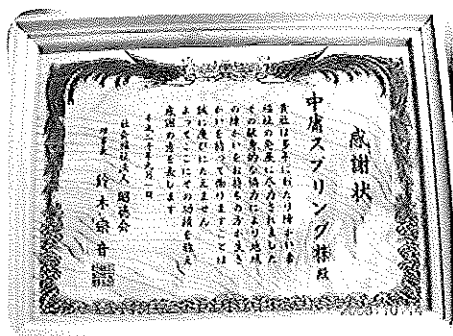 感謝状
中庸スプリング㈱殿
貴社は多年にわたり障がい者
福祉の発展に尽力されました
その献身的な協力により地域
の障がいをお持ちの方が生き
がいを持って働けますことは
誠に喜びにたえません
よってここにその功績を称え
感謝の意を表します
平成二十年九月一日
社会福祉法人 昭徳会
理事長 鈴木宗音
2008.10.14